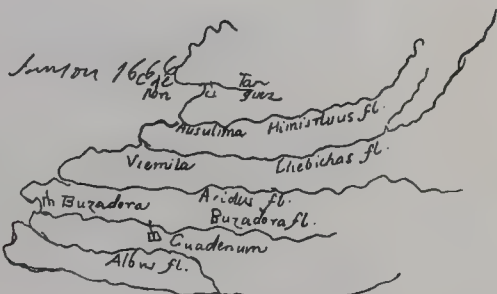 Sanson 1666
Cape
Non
Tan
guez
Ausulima Himisnuus fl.
Viemila Chebichas fl.
Buzadora Aridus fl.
Buzadora fl.
Guadenum
Albus fl.